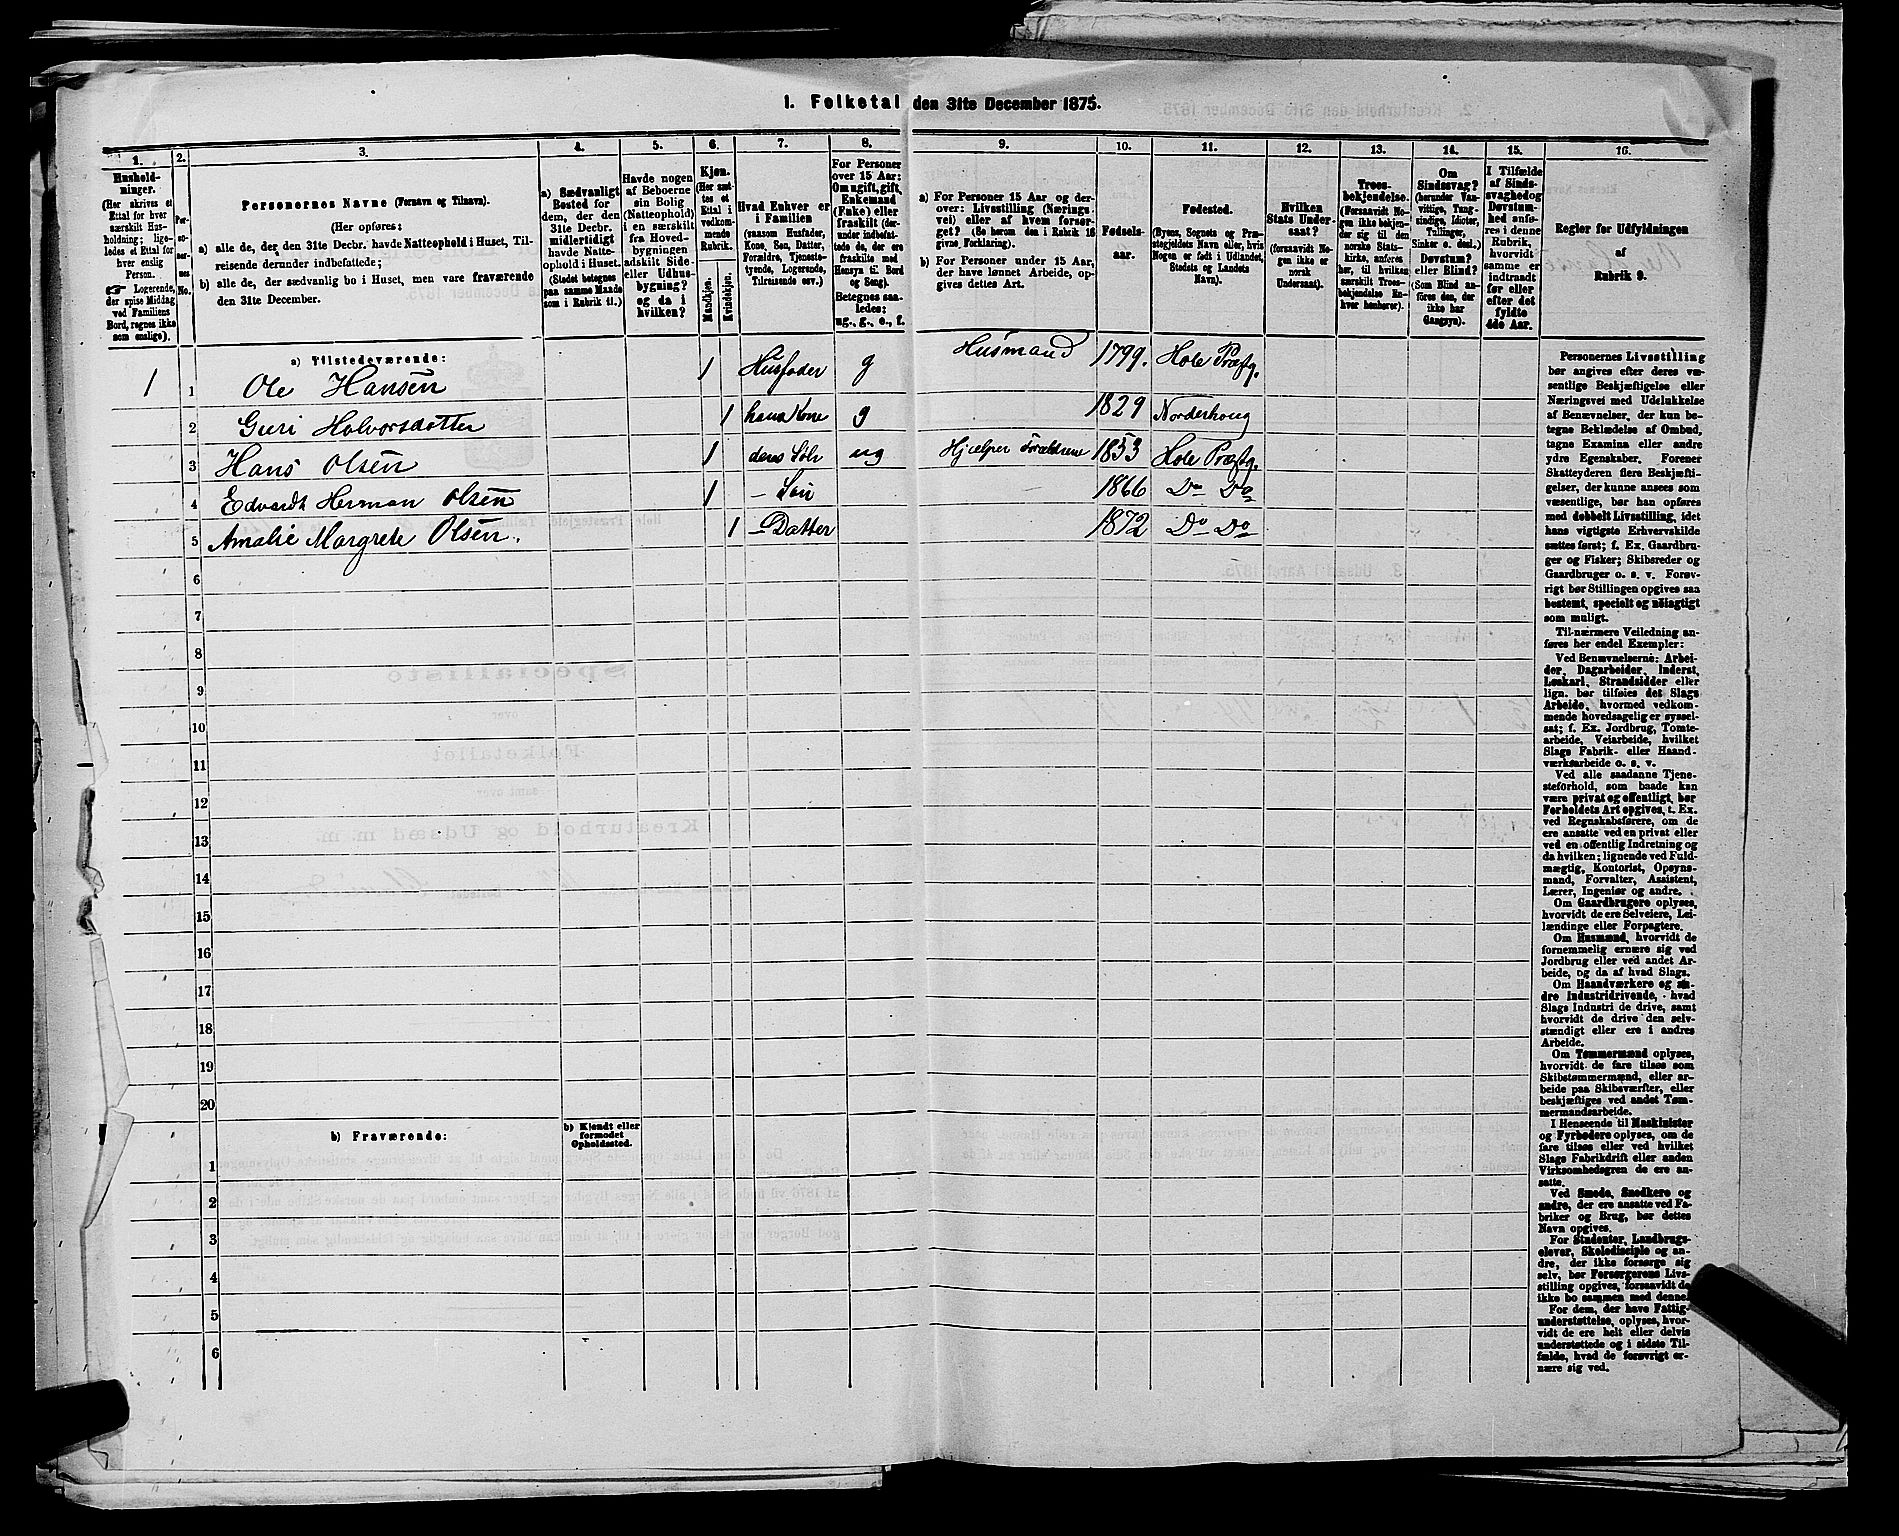 1. Folketal den 31te December 1875.
1.
Hushold-
ninger.
(Her skrives et
Ettal for hver
særskilt Hus-
holdning; lige-
ledes et Ettal for
hver enslig
Person.
☞ Logerende,
der spise Middag
ved Familiens
Bord, regnes ikke
som enslige).
2.
Per-
so-
ner-
nes
No.
3.
Personernes Navne (Fornavn og Tilnavn).
(Her opføres:
a) alle de, der den 31te Decbr. havde Natteophold i Huset, Til-
reisende derunder indbefattede;
b) alle de, der sædvanlig bo i Huset, men vare fraværende
den 31te December.
4.
a) Sædvanligt
Bosted for
dem, der den
31te Decbr.
midlertidigt
havde Natte-
ophold i Huset.
(Stedet betegnes
paa samme Maade
som i Rubrik 11.)
5.
Havde nogen
af Beboerne
sin Bolig
(Natteophold)
i en særskilt
fra Hoved-
bygningen
adskilt Side-
eller Udhus-
bygning?
og da i
hvilken?
6.
Kjøn.
(Her sæt-
tes et
Ettal i
vedkom-
mende
Rubrik.
Mandkjøn.
Kvindekjøn.
7.
Hvad Enhver er
i Familien
(saasom Husfader,
Kone, Søn, Datter,
Forældre, Tjeneste-
tyende, Logerende,
Tilreisende osv.)
8.
For Personer
over 15 Aar:
Om ugift, gift,
Enkemand
(Enke) eller
fraskilt (der-
under indbefat-
tede de, der ere
fraskilte med
Hensyn til Bord
og Seng).
Betegnes saa-
ledes:
ug., g., e., f.
9.
a) For Personer 15 Aar og der-
over: Livsstilling (Nærings-
vei) eller af hvem forsør-
get? (Se herom den i Rubrik 16
givne Forklaring).
b) For Personer under 15 Aar,
der have lønnet Arbeide, op-
gives dettes Art.
10.
Fødsels-
aar.
11.
Fødested.
(Byens, Sognets og Præ-
stegjeldets Navn eller, hvis
Nogen er født i Udlandet,
Stedets og Landets
Navn).
12.
Hvilken
Stats Under-
saat?
(forsaavidt No-
gen ikke er
norsk
Undersaat).
13.
Troes-
bekjendelse.
(Forsaavidt No-
gen ikke bekjen-
der sig til den
norske Stats-
kirke, anføres
her, til hvilken
særskilt Troes-
bekjendelse En-
hver henhører).
14.
Om
Sindssvag?
(herunder Van-
vittige, Tung-
sindige, Idioter,
Tullinger,
Sinker o. desl.)
Døvstum?
eller Blind?
(Som Blind an-
føres den, der
ikke har
Gangsyn).
15.
I Tilfælde
af Sinds-
svaghed og
Døvstum-
hed anfø-
res i denne
Rubrik,
hvorvidt
samme er
indtraadt
før eller
efter det
fyldte
4de Aar.
16.
Regler for Udfyldningen
af
Rubrik 9.
a) Tilstedeværende:
1 1 Ole Hansen 1 Husfader g Husmand 1799. Hole Præstg.
2 Guri Halvorsdatter 1 hans Kone g 1829 Norderhoug
3 Hans Olsen 1 deres Søn ug Hjælper Forældrene 1853 Hole Præstg.
4 Edvardt Herman Olsen 1 – Søn 1866 Do Do
5 Amalie Margrete Olsen. 1 – Datter 1872 Do Do
6
7
8
9
10
11
12
13
14
15
16
17
18
19
20
b) Fraværende:
b) Kjendt eller
formodet
Opholdssted.
1
2
3
4
5
6
Personernes Livsstilling
bør angives efter deres væ-
sentlige Beskjæftigelse eller
Næringsvei med Udelukkelse
af Benævnelser, der kun be-
tegne Beklædelse af Ombud,
tagne Examina eller andre
ydre Egenskaber. Forener
Skatteyderen flere Beskjæfti-
gelser, der kunne ansees som
væsentlige, bør han opføres
med dobbelt Livsstilling, idet
hans vigtigste Erhvervskilde
sættes først; f. Ex. Gaardbru-
ger og Fisker; Skibsreder og
Gaardbruger o. s. v. Forøv-
rigt bør Stillingen opgives saa
bestemt, specielt og nøiagtigt
som muligt.
Til nærmere Veiledning an-
føres her endel Exempler:
Ved Benævnelserne: Arbei-
der, Dagarbeider, Inderst,
Løskarl, Strandsidder eller
lign. bør tilføies det Slags
Arbeide, hvormed vedkom-
mende hovedsagelig er syssel-
sat; f. Ex. Jordbrug, Tomte-
arbeide, Veiarbeide, hvilket
Slags Fabrik- eller Haand-
værksarbeide o. s. v.
Ved alle saadanne Tjene-
steforhold, som baade kan
være privat og offentligt, bør
Forholdets Art opgives, t. Ex.
ved Regnskabsførere, om de
ere ansatte ved en privat eller
ved en offentlig Indretning og
da hvilken; lignende ved Fuld-
mægtig, Kontorist, Opsyns-
mand, Forvalter, Assistent,
Lærer, Ingeniør og andre.
Om Gaardbrugere oplyses,
hvorvidt de ere Selveiere, Lei-
lændinge eller Forpagtere.
Om Husmænd, hvorvidt de
fornemmelig ernære sig ved
Jordbrug eller ved andet Ar-
beide, og da af hvad Slags.
Om Haandværkere og an-
dre Industridrivende, hvad
Slags Industri de drive, samt
hvorvidt de drive den selv-
stændigt eller ere i andres
Arbeide.
Om Tømmermænd oplyses,
hvorvidt de fare tilsøs som
Skibstømmermænd, eller ar-
beide paa Skibsværfter, eller
beskjæftiges ved andet Tøm-
mermandsarbeide.
I Henseende til Maskinister
og Fyrbødere oplyses, om de
fare tilsøs eller ved hvilket
Slags Fabrikdrift eller anden
Virksomhedsgren de ere an-
satte.
Ved Smede, Snedkere og
andre, der ere ansatte ved Fa-
briker og Brug, bør dettes
Navn opgives.
For Studenter, Landbrugs-
elever, Skoledisciple og an-
dre, der ikke forsørge sig
selv, bør Forsørgerens Livs-
stilling opgives, forsaavidt de
ikke bo sammen med denne.
For dem, der have Fattig-
understøttelse, oplyses, hvor-
vidt de ere helt eller delvis
understøttede og i sidste Til-
fælde, hvad de forøvrigt er-
nære sig ved.